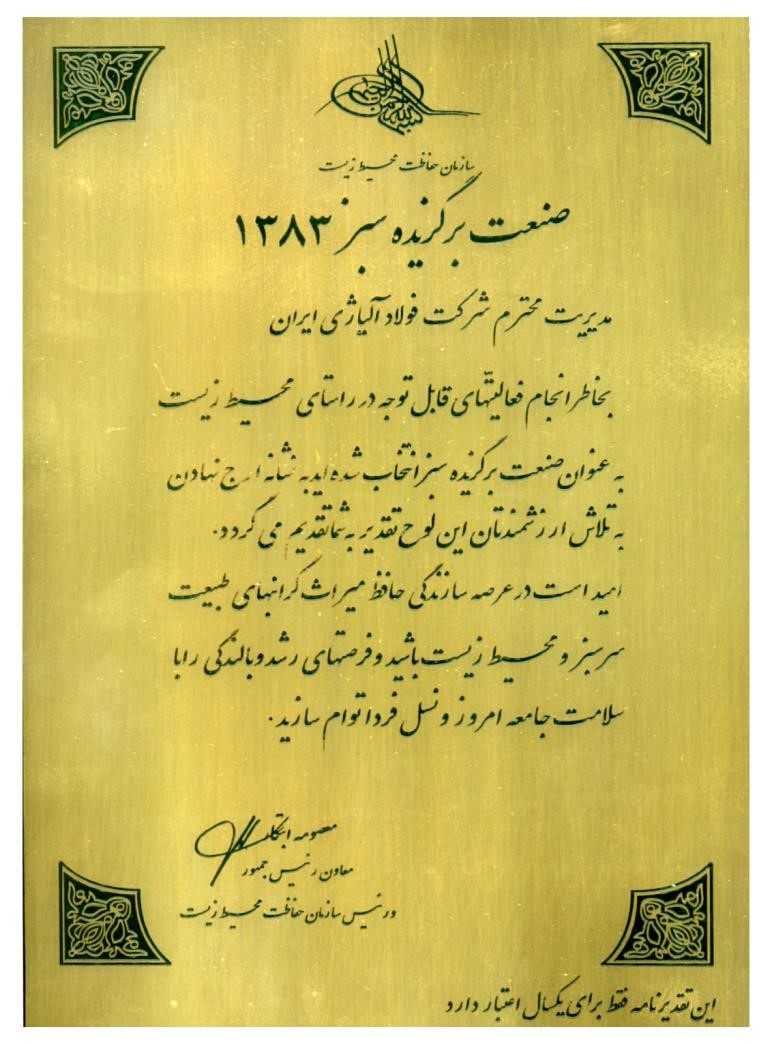 بسم الله الرحمن الرحیم
سازمان حفاظت محیط زیست
صنعت برگزیده سبز ۱۳۸۳
مدیریت محترم شرکت فولاد آلیاژی ایران
بخاطر انجام فعالیتهای قابل توجه در راستای محیط زیست
به عنوان صنعت برگزیده سبز انتخاب شده اید به نشانه ارج نهادن
به تلاش ارزشمندتان این لوح تقدیر به شما تقدیم می گردد.
امید است در عرصه سازندگی حافظ میراث گرانبهای طبیعت
سرسبز و محیط زیست باشید و فرصتهای رشد و بالندگی را با
سلامت جامعه امروز و نسل فردا توام سازید.
معصومه ابتکار
معاون رئیس جمهور
و رئیس سازمان حفاظت محیط زیست
این تقدیرنامه فقط برای یکسال اعتبار دارد